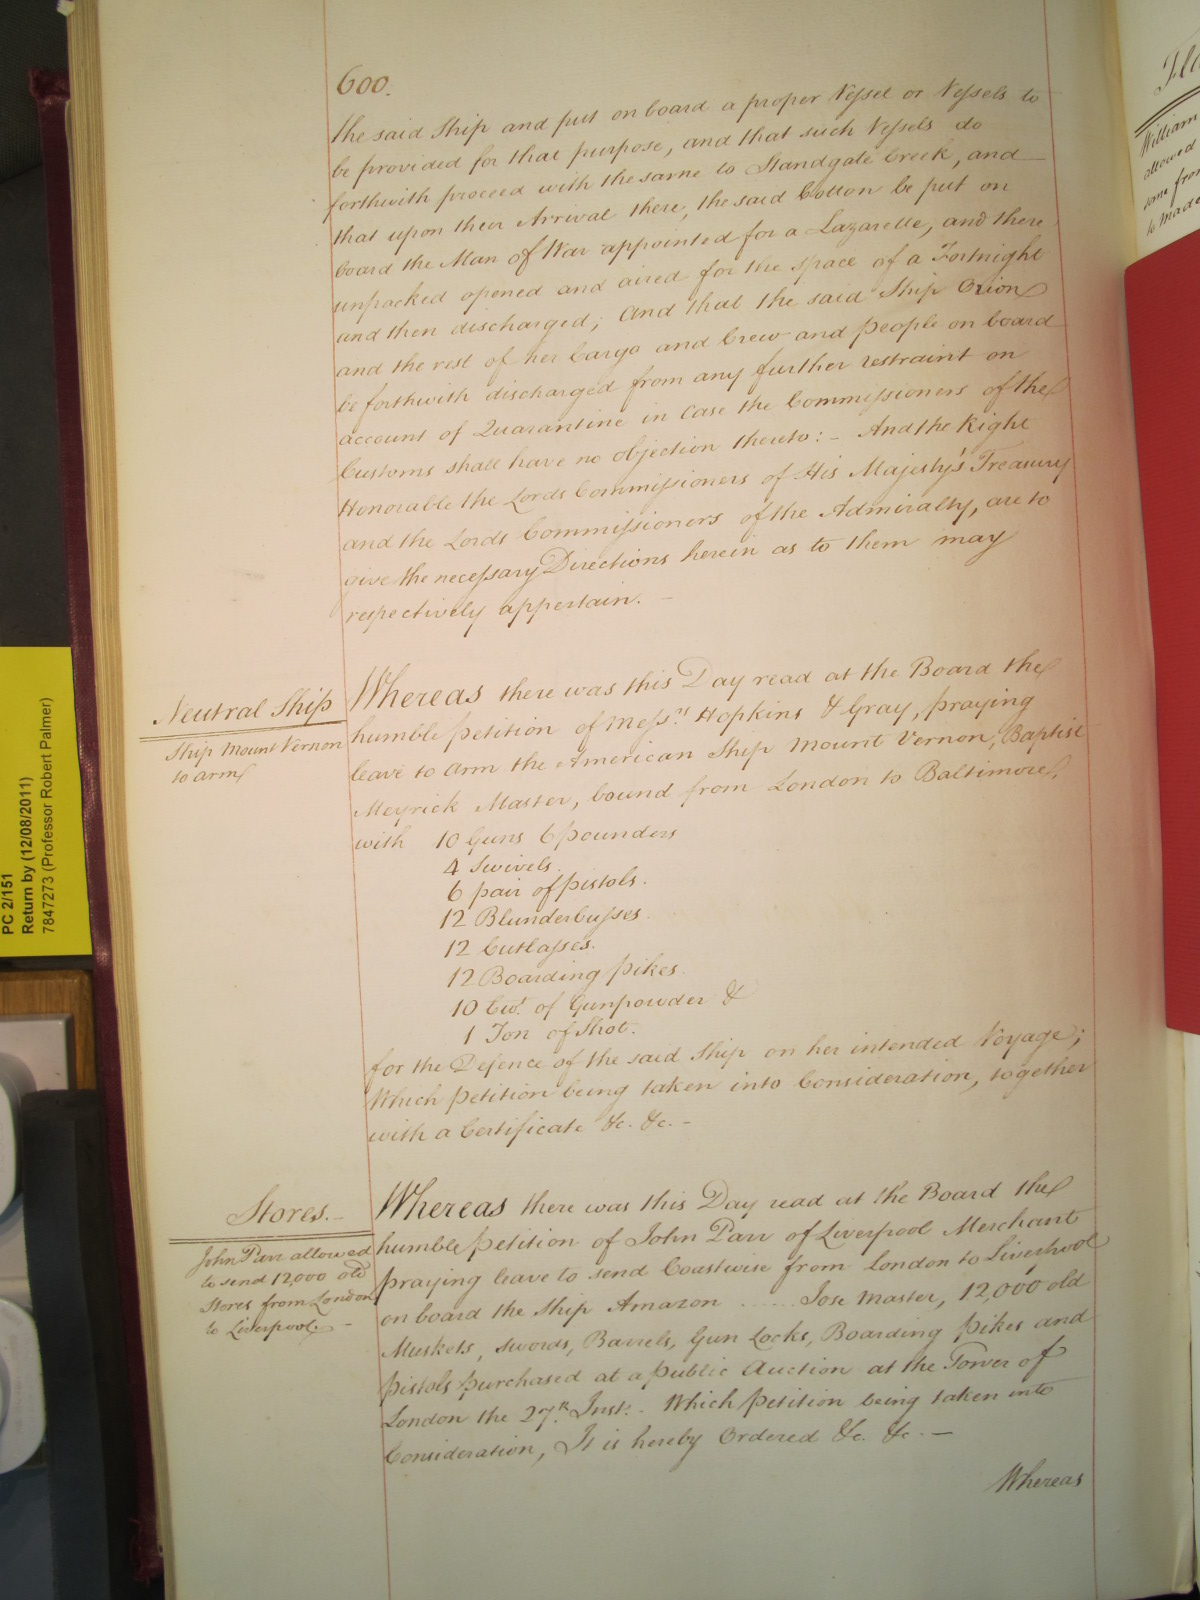 600.
the said Ship and put on board a proper Vessel or Vessels to
be provided for that purpose, and that such Vessels do
forthwith proceed with the same to Standgate Creek, and
that upon their Arrival there, the said Cotton be put on
board the Man of War appointed for a Lazarette, and there
unpacked opened and aired for the space of a Fortnight
and then discharged; And that the said Ship Orion
and the rest of her Cargo and Crew and people on board
be forthwith discharged from any further restraint on
account of Quarantine in Case the Commissioners of the
Customs shall have no objection thereto: - And the Right
Honorable the Lords Commissioners of His Majesty's Treasury
and the Lords Commissioners of the Admiralty, are to
give the necessary Directions herein as to them may
respectively appertain. -
Neutral Ship
Ship Mount Vernon
to arm
Whereas there was this Day read at the Board the
humble petition of Mess.rs Hopkins & Gray, praying
leave to Arm the American Ship Mount Vernon, Baptist
Meyrick Master, bound from London to Baltimore,
with 10 Guns 6 pounders
4 Swivels.
6 pair of pistols.
12 Blunderbusses.
12 Cutlasses.
12 Boarding pikes.
10 Cwt. of Gunpowder &
1 Ton of Shot.
for the Defence of the said Ship on her intended Voyage;
Which petition being taken into Consideration, together
with a Certificate &c. &c. -
Stores. -
John Parr allowed
to send 12,000 old
Stores from London
to Liverpool. -
Whereas there was this Day read at the Board the
humble petition of John Parr of Liverpool Merchant
praying leave to send Coastwise from London to Liverpool
on board the Ship Amazon ..... Jose Master, 12,000 old
Muskets, Swords, Barrels, Gun Locks, Boarding pikes and
pistols purchased at a public Auction at the Tower of
London the 27.th Inst. - Which petition being taken into
Consideration, It is hereby Ordered &c. &c. -
Whereas
PC 2/151
Return by (12/08/2011)
7847273 (Professor Robert Palmer)
William
allowed
same from
to Made